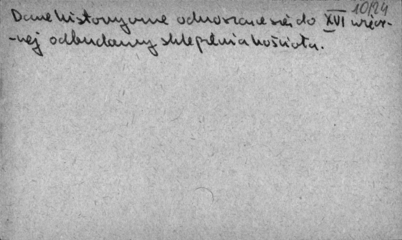 10/24
Dane historyczne odnoszące się do XVI wiecz-
-nej odbudowy sklepienia kościoła.